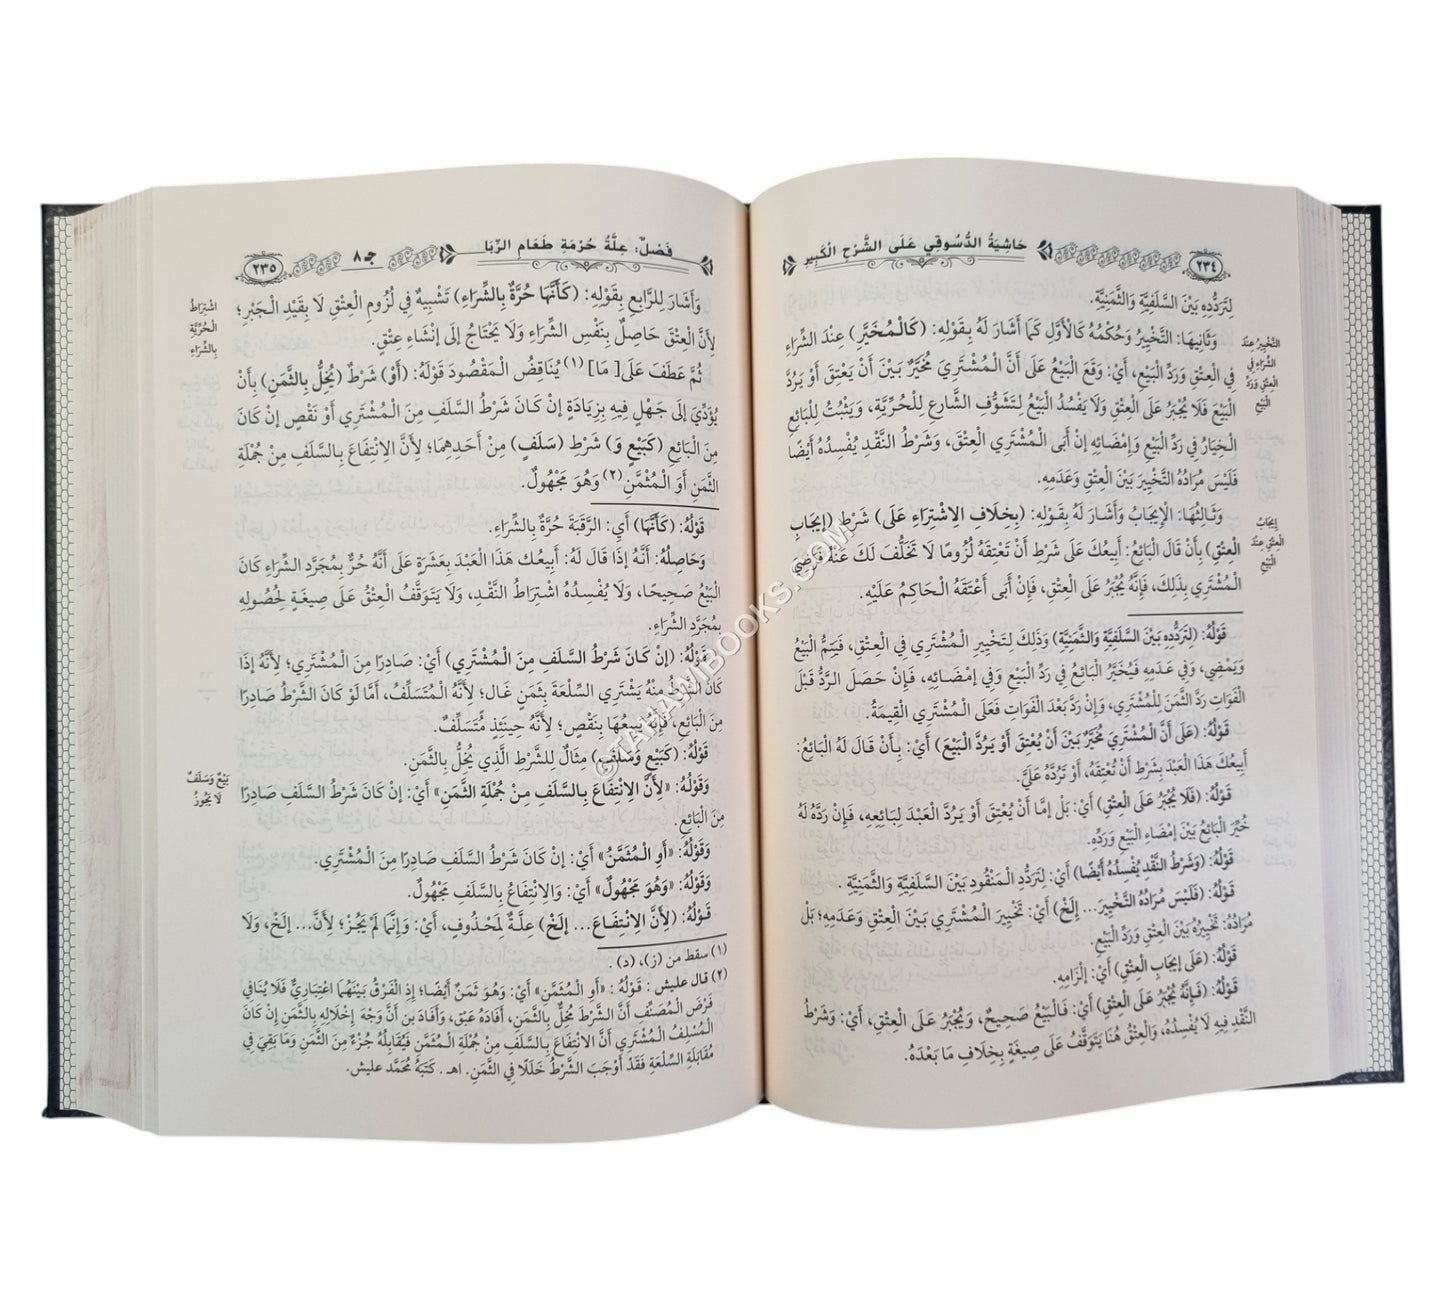 ٢٣٤
حَاشِيَةُ الدُّسُوقِي عَلَى الشَّرْحِ الْكَبِيرِ
لِتَرَدُّدِهِ بَيْنَ السَّلَفِيَّةِ وَالثَّمَنِيَّةِ.
وَثَانِيهَا: التَّخْيِيرُ وَحُكْمُهُ كَالْأَوَّلِ كَمَا أَشَارَ لَهُ بِقَوْلِهِ: (كَالْمُخَيَّرِ) عِنْدَ الشِّرَاءِ
فِي الْعِتْقِ وَرَدِّ الْبَيْعِ، أَيْ: وَقَعَ الْبَيْعُ عَلَى أَنَّ الْمُشْتَرِيَ مُخَيَّرٌ بَيْنَ أَنْ يَعْتِقَ أَوْ يَرُدَّ
الْبَيْعَ فَلَا يُجْبَرُ عَلَى الْعِتْقِ وَلَا يَفْسُدُ الْبَيْعُ لِتَشَوُّفِ الشَّارِعِ لِلْحُرِّيَّةِ، وَيَثْبُتُ لِلْبَائِعِ
الْخِيَارُ فِي رَدِّ الْبَيْعِ وَإِمْضَائِهِ إِنْ أَبَى الْمُشْتَرِي الْعِتْقَ، وَشَرْطُ النَّقْدِ يُفْسِدُهُ أَيْضًا
فَلَيْسَ مُرَادُهُ التَّخْيِيرَ بَيْنَ الْعِتْقِ وَعَدَمِهِ.
وَثَالِثُهَا: الْإِيجَابُ وَأَشَارَ لَهُ بِقَوْلِهِ: (بِخِلَافِ الِاشْتِرَاءِ عَلَى) شَرْطِ (إِيجَابِ
الْعِتْقِ) بِأَنْ قَالَ الْبَائِعُ: أَبِيعُكَ عَلَى شَرْطِ أَنْ تَعْتِقَهُ لُزُومًا لَا تَخَلُّفَ لَكَ عَنْهُ فَرَضِيَ
الْمُشْتَرِي بِذَلِكَ، فَإِنَّهُ يُجْبَرُ عَلَى الْعِتْقِ، فَإِنْ أَبَى أَعْتَقَهُ الْحَاكِمُ عَلَيْهِ.
التَّخْيِيرُ عِنْدَ
الشِّرَاءِ فِي
الْعِتْقِ وَرَدِّ
الْبَيْعِ
إِيجَابُ
الْعِتْقِ عِنْدَ
الْبَيْعِ
قَوْلُهُ: (لِتَرَدُّدِهِ بَيْنَ السَّلَفِيَّةِ وَالثَّمَنِيَّةِ) وَذَلِكَ لِتَخْيِيرِ الْمُشْتَرِي فِي الْعِتْقِ، فَيَتِمُّ الْبَيْعُ
وَيَمْضِي، وَفِي عَدَمِهِ فَيُخَيَّرُ الْبَائِعُ فِي رَدِّ الْبَيْعِ وَفِي إِمْضَائِهِ، فَإِنْ حَصَلَ الرَّدُّ قَبْلَ
الْفَوَاتِ رَدَّ الثَّمَنَ لِلْمُشْتَرِي، وَإِنْ رَدَّ بَعْدَ الْفَوَاتِ فَعَلَى الْمُشْتَرِي الْقِيمَةُ.
قَوْلُهُ: (عَلَى أَنَّ الْمُشْتَرِيَ مُخَيَّرٌ بَيْنَ أَنْ يُعْتِقَ أَوْ يَرُدَّ الْبَيْعَ) أَيْ: بِأَنْ قَالَ لَهُ الْبَائِعُ:
أَبِيعُكَ هَذَا الْعَبْدَ بِشَرْطِ أَنْ تُعْتِقَهُ، أَوْ تَرُدَّهُ عَلَيَّ.
قَوْلُهُ: (فَلَا يُجْبَرُ عَلَى الْعِتْقِ) أَيْ: بَلْ إِمَّا أَنْ يُعْتِقَ أَوْ يَرُدَّ الْعَبْدَ لِبَائِعِهِ، فَإِنْ رَدَّهُ لَهُ
خُيِّرَ الْبَائِعُ بَيْنَ إِمْضَاءِ الْبَيْعِ وَرَدِّهِ.
قَوْلُهُ: (وَشَرْطُ النَّقْدِ يُفْسِدُهُ أَيْضًا) أَيْ: لِتَرَدُّدِ الْمَنْقُودِ بَيْنَ السَّلَفِيَّةِ وَالثَّمَنِيَّةِ .
قَوْلُهُ: (فَلَيْسَ مُرَادُهُ التَّخْيِيرَ... إلَخْ) أَيْ: تَخْيِيرَ الْمُشْتَرِي بَيْنَ الْعِتْقِ وَعَدَمِهِ؛ بَلْ
مُرَادُهُ: تَخْيِيرُهُ بَيْنَ الْعِتْقِ وَرَدِّ الْبَيْعِ.
قَوْلُهُ: (عَلَى إِيجَابِ الْعِتْقِ) أَيْ: إِلْزَامِهِ.
قَوْلُهُ: (فَإِنَّهُ يُجْبَرُ عَلَى الْعِتْقِ) أَيْ: فَالْبَيْعُ صَحِيحٌ، وَيُجْبَرُ عَلَى الْعِتْقِ، أَيْ: وَشَرْطُ
النَّقْدِ فِيهِ لَا يُفْسِدُهُ، وَالْعِتْقُ هُنَا يَتَوَقَّفُ عَلَى صِيغَةٍ بِخِلَافِ مَا بَعْدَهُ.
فَصْلٌ: عِلَّةُ حُرْمَةِ طَعَامِ الرِّبَا
جـ ٨
٢٣٥
وَأَشَارَ لِلرَّابِعِ بِقَوْلِهِ: (كَأَنَّهَا حُرَّةٌ بِالشِّرَاءِ) تَشْبِيهٌ فِي لُزُومِ الْعِتْقِ لَا بِقَيْدِ الْجَبْرِ؛
لِأَنَّ الْعِتْقَ حَاصِلٌ بِنَفْسِ الشِّرَاءِ وَلَا يَحْتَاجُ إِلَى إِنْشَاءِ عِتْقٍ.
ثُمَّ عَطَفَ عَلَى [مَا] (١) يُنَاقِضُ الْمَقْصُودَ قَوْلَهُ: (أَوْ) شَرْطٌ (يُخِلُّ بِالثَّمَنِ) بِأَنْ
يُؤَدِّيَ إِلَى جَهْلٍ فِيهِ بِزِيَادَةٍ إِنْ كَانَ شَرْطُ السَّلَفِ مِنَ الْمُشْتَرِي أَوْ نَقْصٍ إِنْ كَانَ
مِنَ الْبَائِعِ (كَبَيْعٍ وَ) شَرْطِ (سَلَفٍ) مِنْ أَحَدِهِمَا؛ لِأَنَّ الِانْتِفَاعَ بِالسَّلَفِ مِنْ جُمْلَةِ
الثَّمَنِ أَوَ الْمُثْمَنِ (٢) وَهُوَ مَجْهُولٌ.
اشْتِرَاطُ
الْحُرِّيَّةِ
بِالشِّرَاءِ
قَوْلُهُ: (كَأَنَّهَا) أَيِ: الرَّقَبَةَ حُرَّةٌ بِالشِّرَاءِ.
وَحَاصِلُهُ: أَنَّهُ إِذَا قَالَ لَهُ: أَبِيعُك هَذَا الْعَبْدَ بِعَشَرَةٍ عَلَى أَنَّهُ حُرٌّ بِمُجَرَّدِ الشِّرَاءِ كَانَ
الْبَيْعُ صَحِيحًا، وَلَا يُفْسِدُهُ اشْتِرَاطُ النَّقْدِ، وَلَا يَتَوَقَّفُ الْعِتْقُ عَلَى صِيغَةٍ لِحُصُولِهِ
بِمُجَرَّدِ الشِّرَاءِ.
قَوْلُهُ: (إِنْ كَانَ شَرْطُ السَّلَفِ مِنَ الْمُشْتَرِي) أَيْ: صَادِرًا مِنَ الْمُشْتَرِي؛ لِأَنَّهُ إِذَا
كَانَ الشَّرْطُ مِنْهُ يَشْتَرِي السِّلْعَةَ بِثَمَنٍ غَالٍ؛ لِأَنَّهُ الْمُتَسَلِّفُ، أَمَّا لَوْ كَانَ الشَّرْطُ صَادِرًا
مِنَ الْبَائِعِ، فَإِنَّهُ يَبِيعُهَا بِنَقْصٍ؛ لِأَنَّهُ حِينَئِذٍ مُتَسَلِّفٌ.
قَوْلُهُ: (كَبَيْعٍ وَسَلَفٍ) مِثَالٌ لِلشَّرْطِ الَّذِي يُخِلُّ بِالثَّمَنِ.
وَقَوْلُهُ: «لِأَنَّ الِانْتِفَاعَ بِالسَّلَفِ مِنْ جُمْلَةِ الثَّمَنِ» أَيْ: إِنْ كَانَ شَرْطُ السَّلَفِ صَادِرًا
مِنَ الْبَائِعِ.
بَيْعٌ وَسَلَفٌ
لَا يَجُوزُ
وَقَوْلُهُ: «أَوِ الْمُثْمَنُ» أَيْ: إِنْ كَانَ شَرْطُ السَّلَفِ صَادِرًا مِنَ الْمُشْتَرِي.
وَقَوْلُهُ: «وَهُوَ مَجْهُولٌ» أَيْ: وَالِانْتِفَاعُ بِالسَّلَفِ مَجْهُولٌ.
قَوْلُهُ: (لِأَنَّ الِانْتِفَاعَ... إلَخْ) عِلَّةٌ لِمَحْذُوفٍ، أَيْ: وَإِنَّمَا لَمْ يَجُزْ؛ لِأَنَّ... إلَخْ، وَلَا
(١) سقط من (ز)، (د) .
(٢) قال عليش : قَوْلُهُ : «أَوِ الْمُثْمَنِ» أَيْ: وَهُوَ ثَمَنٌ أَيْضًا؛ إِذِ الْفَرْقُ بَيْنَهُمَا اعْتِبَارِيٌّ فَلَا يُنَافِي
فَرْضَ الْمُصَنِّفِ أَنَّ الشَّرْطَ مُخِلٌّ بِالثَّمَنِ، أَفَادَهُ عَبْق، وَأَفَادَ بن أَنَّ وَجْهَ إِخْلَالِهِ بِالثَّمَنِ إِنْ كَانَ
الْمُسَلِّفُ الْمُشْتَرِيَ أَنَّ الِانْتِفَاعَ بِالسَّلَفِ مِنْ جُمْلَةِ الْمُثْمَنِ فَيُقَابِلُهُ جُزْءٌ مِنَ الثَّمَنِ وَمَا بَقِيَ فِي
مُقَابَلَةِ السِّلْعَةِ فَقَدْ أَوْجَبَ الشَّرْطُ خَلَلًا فِي الثَّمَنِ. اهـ . كَتَبَهُ مُحَمَّد عليش.
© TAHAWIBOOKS.COM